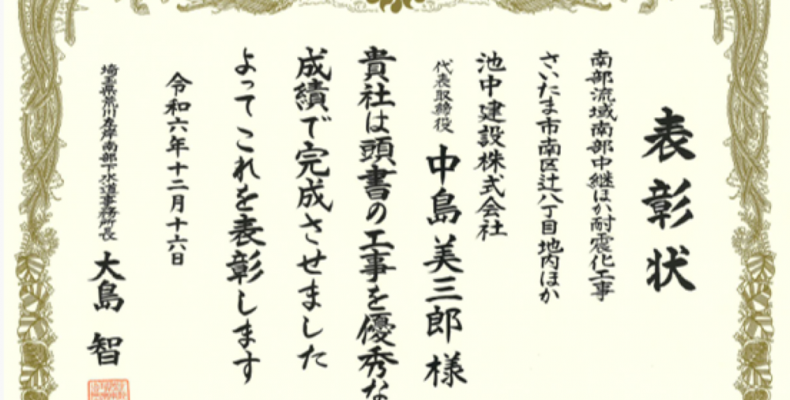 表彰状
南部流域南部中継ほか耐震化工事
さいたま市南区辻八丁目地内ほか
池中建設株式会社
代表取締役 中島美三郎様
貴社は頭書の工事を優秀な
成績で完成させました
よってこれを表彰します
令和六年十二月十六日
埼玉県荒川左岸南部下水道事務所長 大島 智